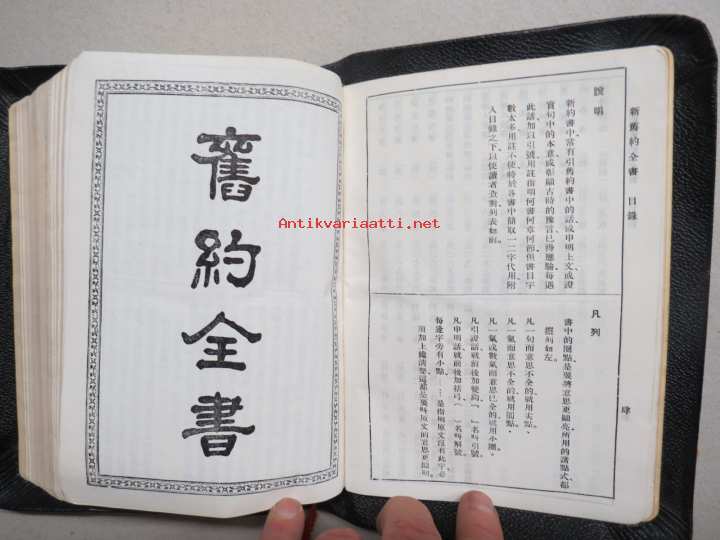 新舊約全書 目錄
肆
說明
新約書中、常有引舊約書中的話、或申明上文、或證
實句中的本意、或彰顯古時的豫言、已得應驗、每遇
此話、加以引號、用註指明何書何章何節、但書目字
數太多、用註不便、特於各書中簡取一二字代用、附
入目錄之下、以便讀者查對、列表如前、
凡列
書中的圈點、是要將意思更顯亮、所用的諸點式、都
凡一句而意思不全的、就用尖點、
凡一氣而意思不全的、就用圓點.
凡一氣或數氣而意思已全的、就用小圈。
凡引證話、就前後加雙鈎、「」名叫引號、
凡申明話、就前後加括弓、（ ）名叫解號、
每逢字旁有小點、……是指明原文沒有此字、必
須加上纔淸楚、這都是要叫原文的意思更顯明、
舊約全書
Antikvariaatti.net